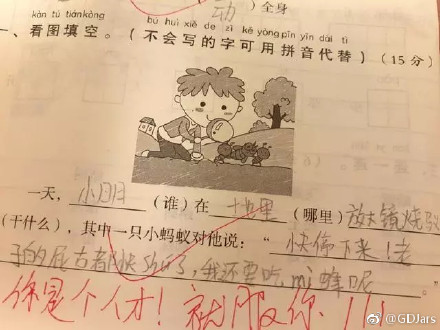 动）全身
kàn tú tián kòng
bú huì xiě de zì kě yòng pīn yīn dài tì
一、看图填空。(不会写的字可用拼音代替)(15分)
一天，小明（谁）在 地里（哪里）放大镜烧
(干什么)，其中一只小蚂蚁对他说："快停下来！老
子的屁古都快 了，我还要吃 mì 蜂呢。"
你是个人才！就服你！！！
@GDJars